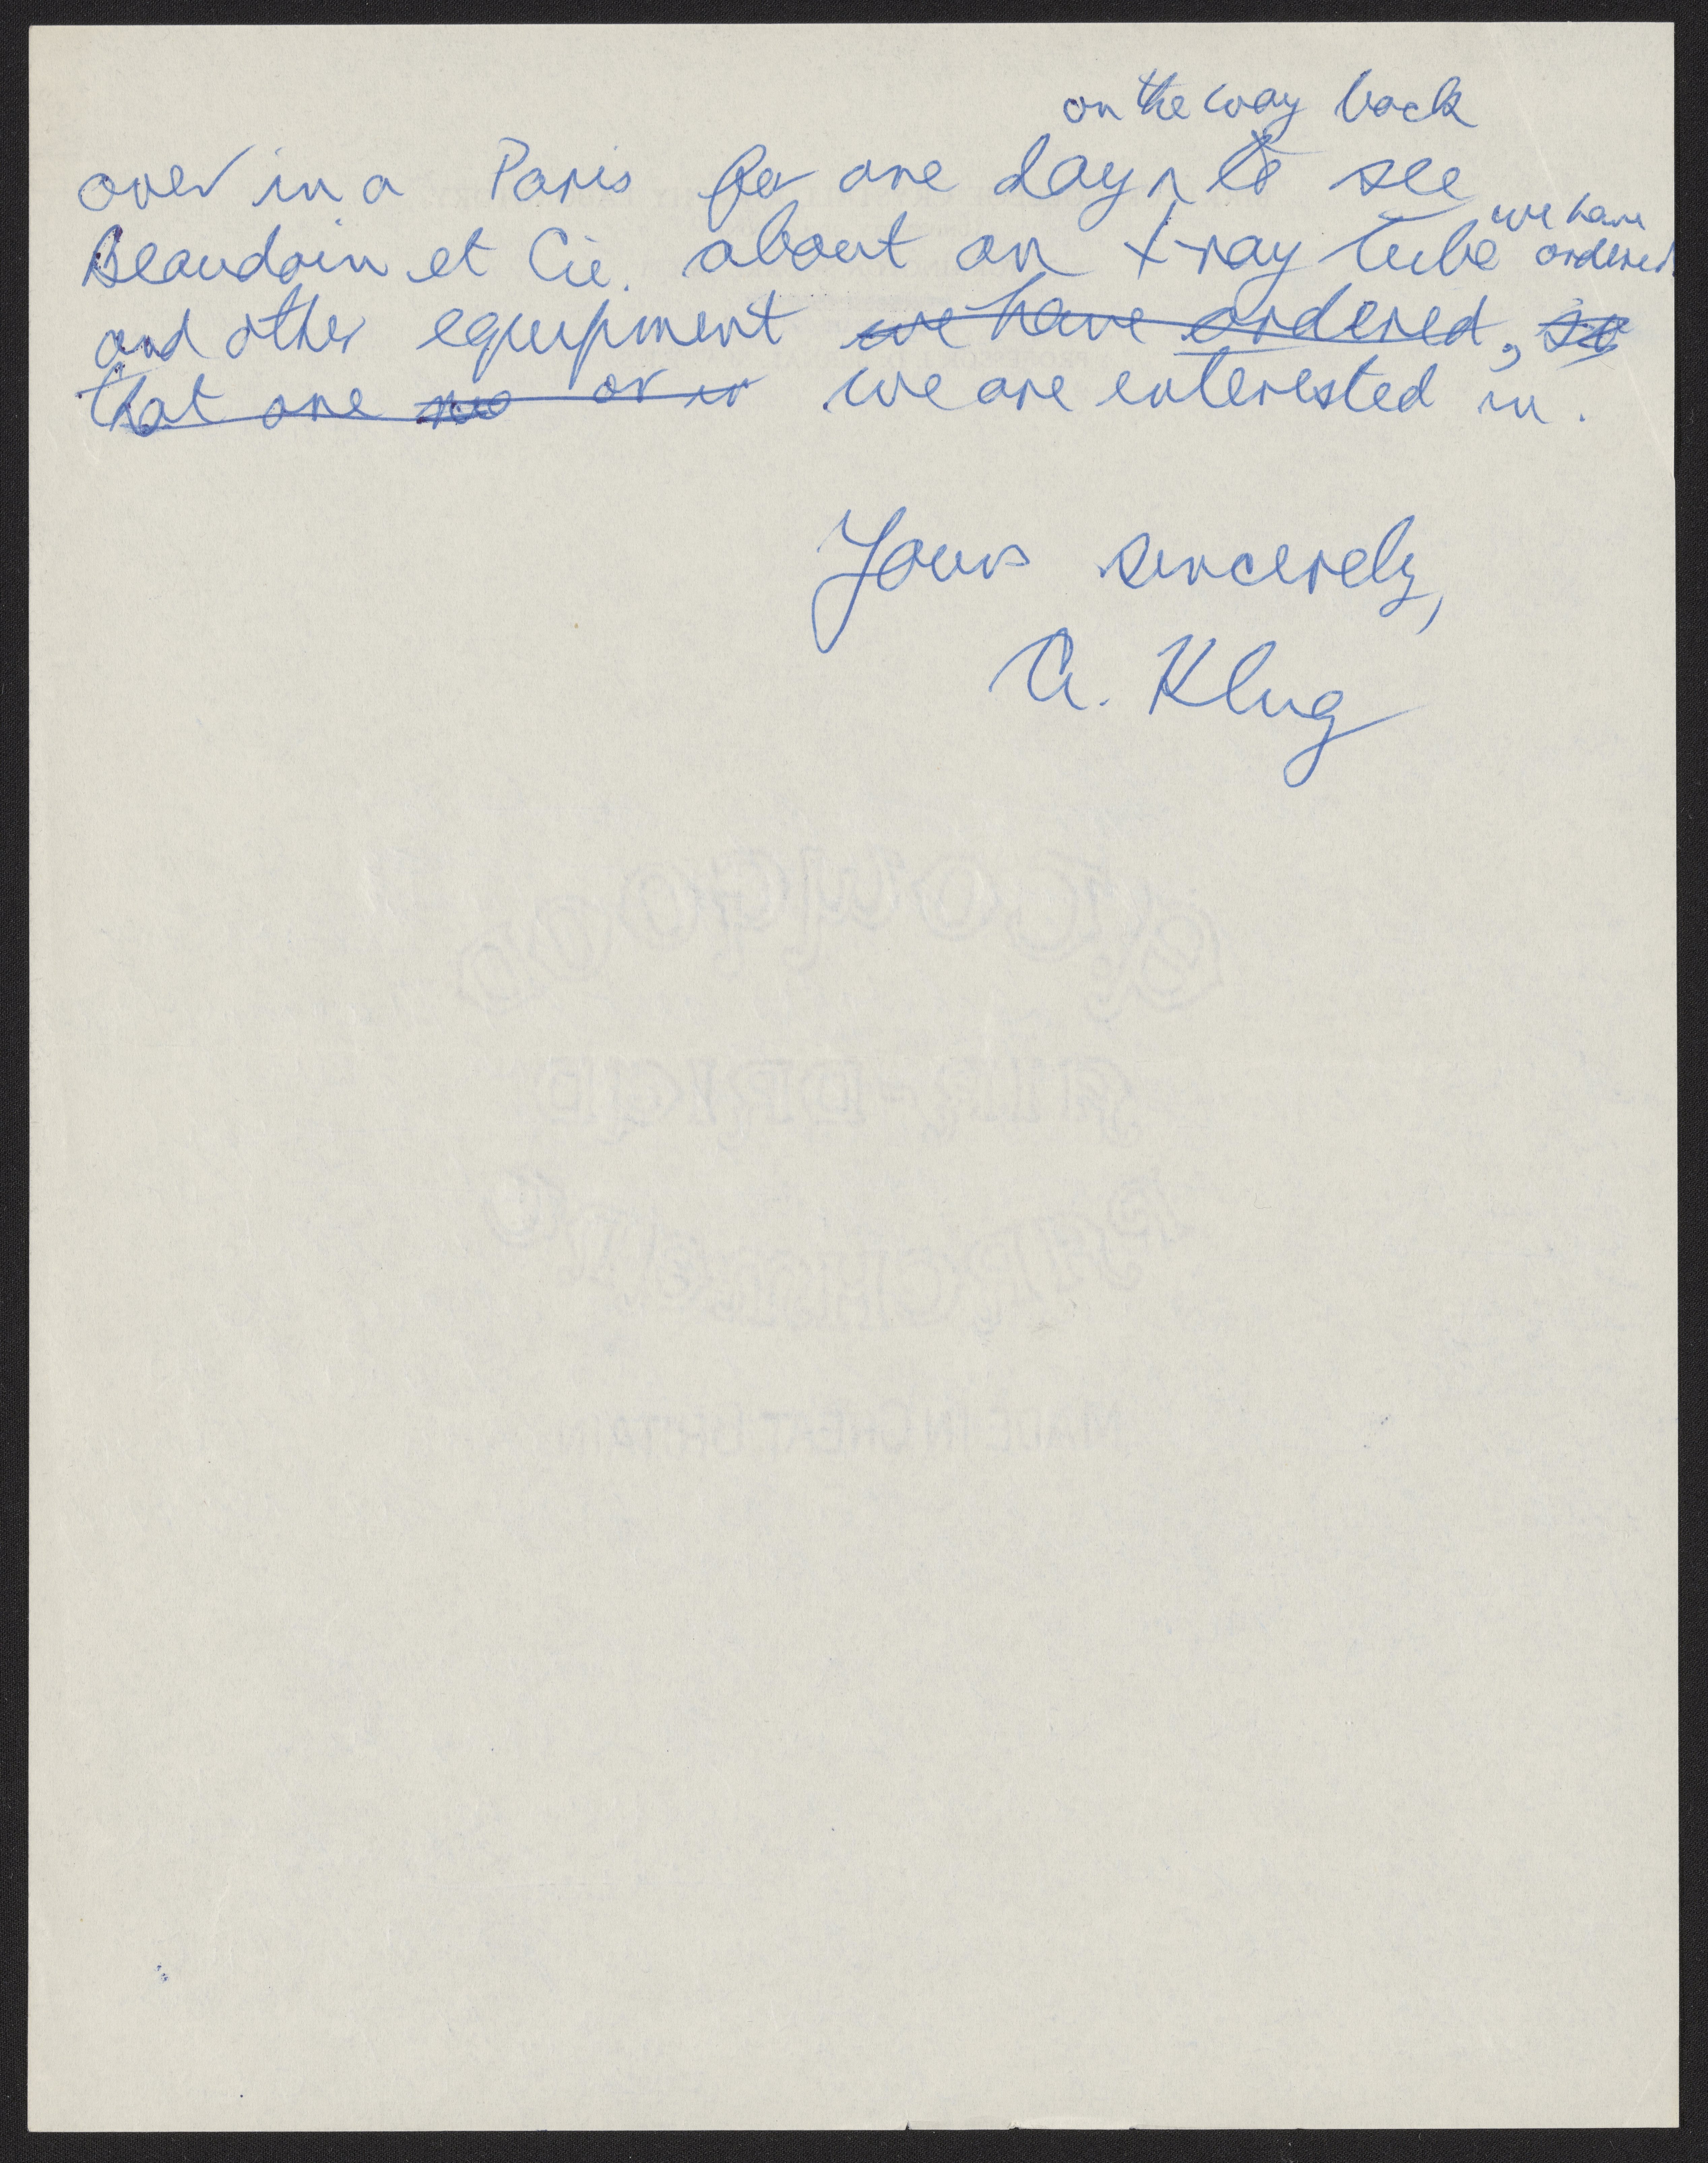 on the way back
over in a Paris for one day ^ to see
we have
Beaudoin et Cie. about an X-ray tube ordered
and other equipment we have ordered, so
that one or we are interested in.
Yours sincerely,
A. Klug
AIR-DRIED
PARCHMENT
MADE IN GREAT BRITAIN